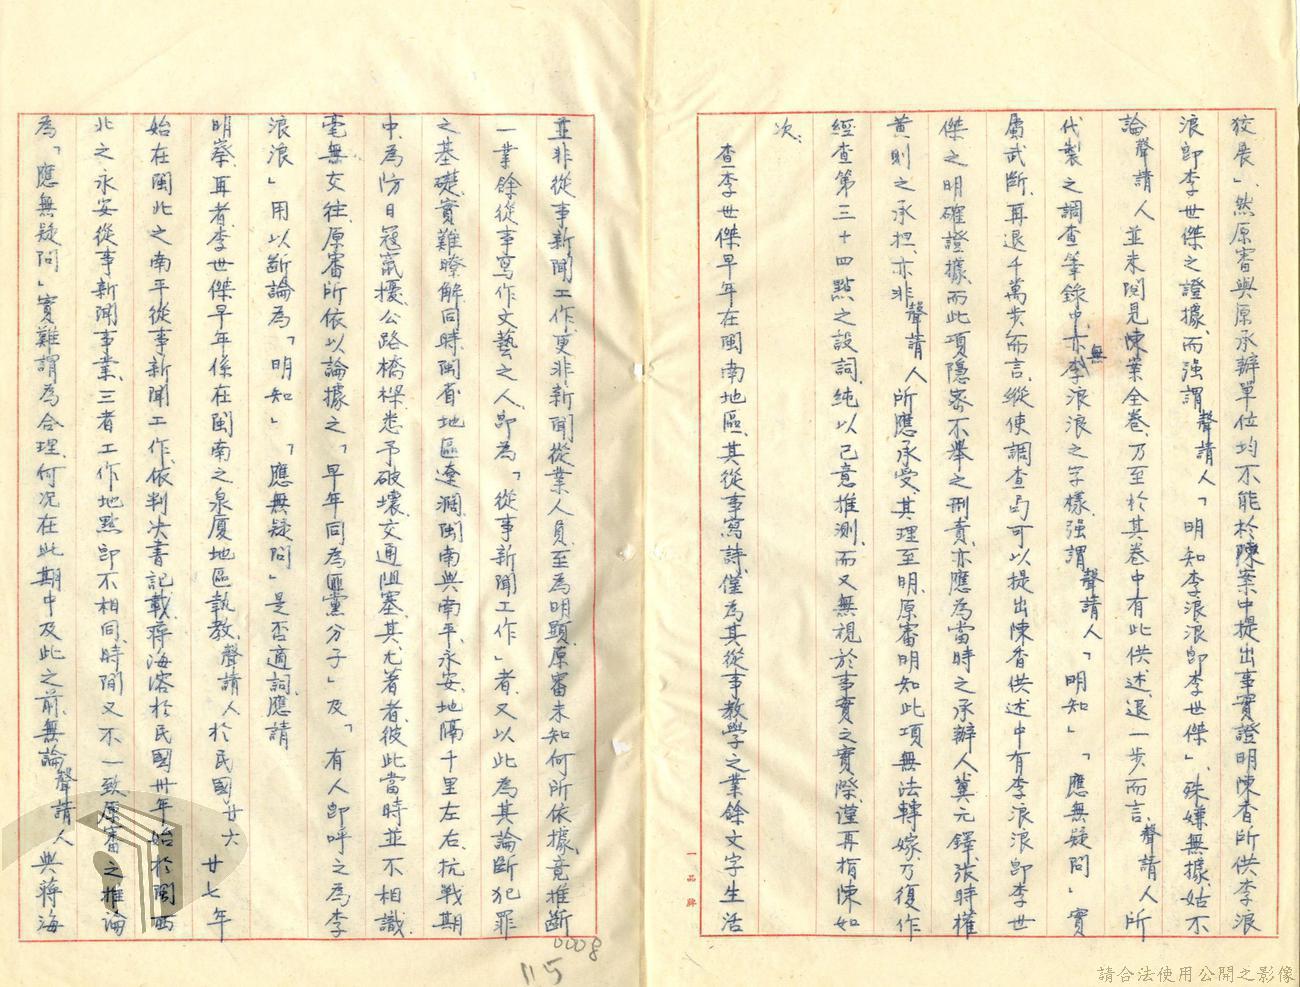 狡展」、然原審與原承辦單位均不能於陳案中提出事實證明陳香所供李浪
浪即李世傑之證據、而強謂聲請人「明知李浪浪即李世傑」、殊嫌無據、姑不
論聲請人並未閱見陳案全卷、乃至於其卷中有此供述、退一步而言、聲請人所
代製之調查筆錄中、亦無李浪浪之字樣、強謂聲請人「明知」「應無疑問」實
屬武斷、再退千萬步而言、縱使調查局可以提出陳香供述中有李浪浪即李世
傑之明確證據、而此項隱密不舉之刑責、亦應為當時之承辦人冀元鐸、張時權
黃則之承担、亦非聲請人所應承受、其理至明、原審明知此項無法轉嫁、乃復作
經查第三十四點之設詞、純以己意推測、而又無視於事實之實際、謹再指陳如
次：
查李世傑早年在閩南地區、其從事寫詩、僅為其從事教學之業餘文字生活
並非從事新聞工作、更非新聞從業人員、至為明顯、原審未知何所依據、竟推斷
一業餘從事寫作文藝之人、即為「從事新聞工作」者、又以此為其論斷犯罪
之基礎、實難瞭解、同時、閩省地區遼濶、閩南與南平、永安、地隔千里左右、抗戰期
中、為防日寇竄擾、公路橋樑、悉予破壞、交通阻塞、其尤著者、彼此當時並不相識、
毫無交往、原審所依以論據之「早年同為匪黨分子」及「有人即呼之為李
浪浪」用以斷論為「明知」「應無疑問」是否適詞、應請
明察、再者、李世傑早年係在閩南之泉厦地區執教、聲請人於民國廿六、廿七年
始在閩北之南平從事新聞工作、依判決書記載、蔣海溶於民國卅年始於閩西
北之永安從事新聞事業、三者工作地點即不相同、時間又不一致、原審之推論
為「應無疑問」實難謂為合理、何況在此期中及此之前、無論聲請人與蔣海
一品牌
0008
115
請合法使用公開之影像